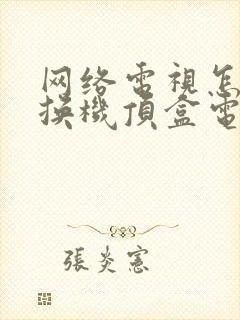 网络電視怎
换機頂盒電
張炎憲